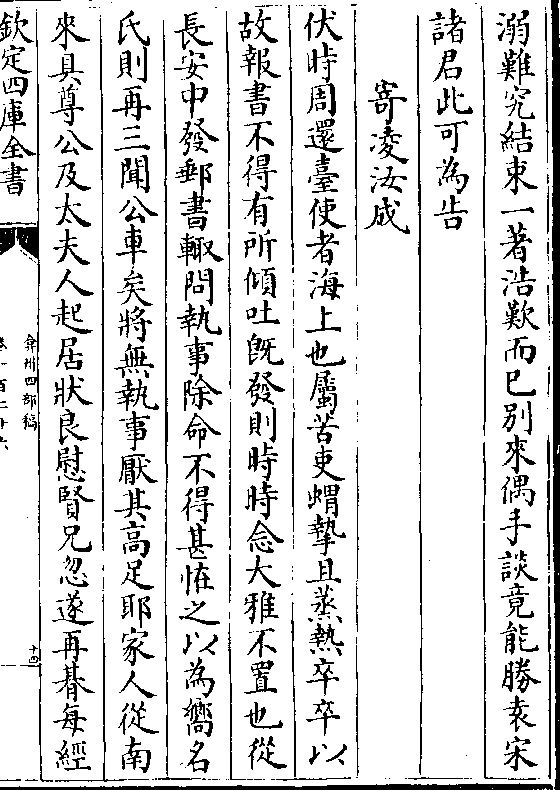 溺難究結束一著浩歎而已別來偶手談竟能勝袁宋
諸君此可為告
寄凌汝成
伏時周還臺使者海上也屬苦吏蝟摯且蒸熱卒卒以
故報書不得有所傾吐既發則時時念大雅不置也從
長安中發郵書輙問執事除命不得甚恠之以為嚮名
氏則再三聞公車矣將無執事厭其高足耶家人從南
來具尊公及太夫人起居狀良慰賢兄忽遂再朞每經
欽定四庫全書
弇州四部稿
卷一百二十六
十四